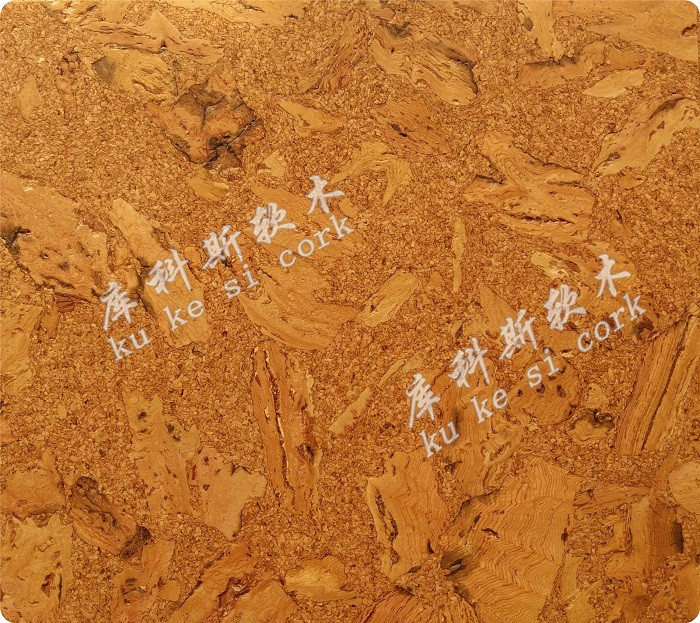 库科斯软木
ku ke si cork
库科斯软木
ku ke si cork